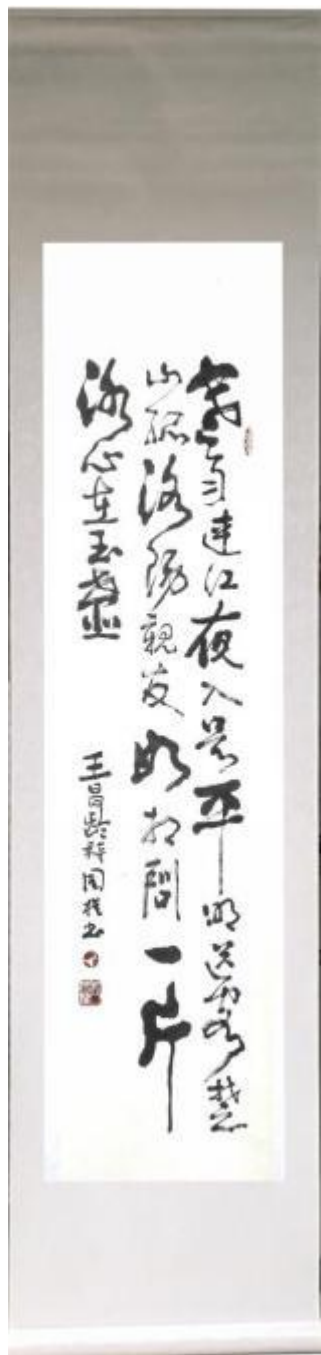 寒雨連江夜入吴平明送客楚
山孤洛陽親友如相問一片
冰心在玉壺
王昌龄诗周书